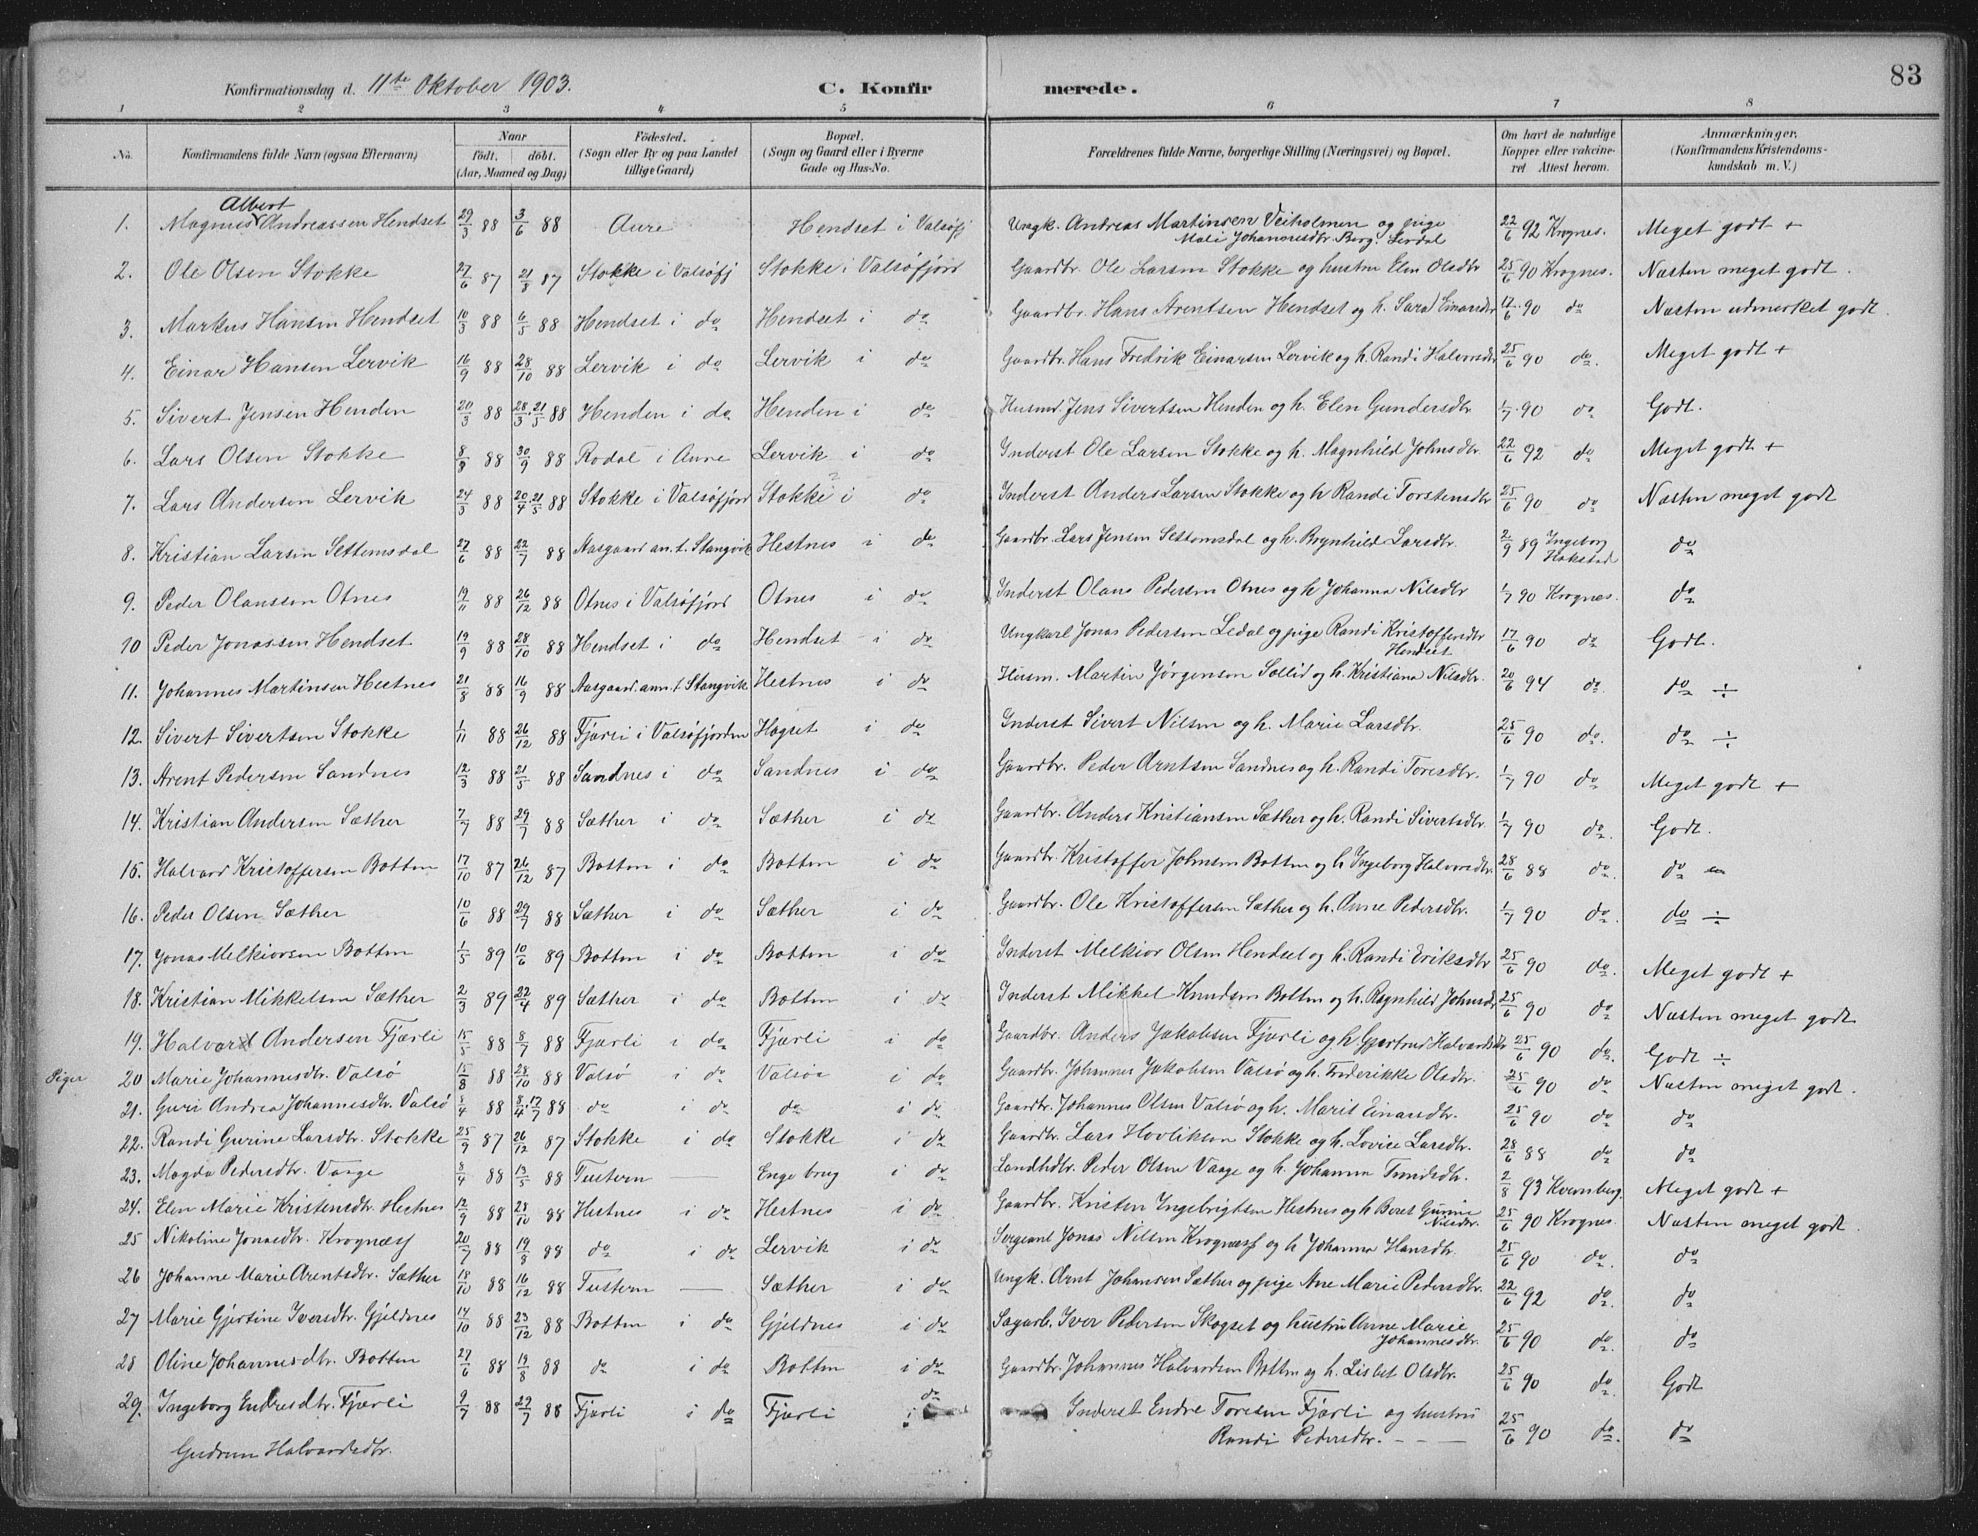 83
Konfirmationsdag d. 11te Oktober 1903.
C. Konfirmerede.
1 2 3 4 5 6 7 8
No. Konfirmandens fulde Navn (ogsaa Efternavn) Naar født. døbt. (Aar, Maaned og Dag) Fødested. (Sogn eller By og paa Landet tillige Gaard) Bopæl. (Sogn og Gaard eller i Byerne Gade og Hus-No. Forældrenes fulde Navne, borgerlige Stilling (Næringsvei) og Bopæl. Om havt de naturlige Kopper eller vakcineret Attest herom. Anmærkninger. (Konfirmandens Kristendomskundskab m. V.)
1. Magnus Albert Andreassen Hendset 29/3 88 3/6 88 Aure Hendset i Valsøfj Ungk. Andreas Martinsen Veiholmen og pige Mali Johannesdtr. Berg. 22/6 92 Krognes. Meget godt +
2. Ole Olsen Stokke 27/6 87 21/8 87 Stokke i Valsøfj Stokke i Valsøfjord Gaardbr. Ole Larsen Stokke og hustru Elen Olsdtr 25/6 90 Krognes. Næsten meget godt.
3. Markus Hansen Hendset 10/3 88 6/5 88 Hendset i do Hendset i do Gaardbr. Hans Arentsen Hendset og h. Sara Einarsdtr 17/6 90 do Næsten udmerket godt.
4. Einar Hansen Lervik 16/9 88 28/10 88 Lervik i do Lervik i do Gaardbr. Hans Fredrik Einarsen Lervik og h. Randi Halvorsdtr 25/6 90 do. Meget godt +
5. Sivert Jensen Henden 20/3 88 28/3 21/5 88 Henden i do Henden i do Husmd. Jens Sivertsen Henden og h. Elen Gundersdtr 1/7 90 do Godt.
6. Lars Olsen Stokke 8/8 88 30/9 88 Rodal i Aure Lervik i do Inderst Ole Larsen Stokke og h. Magnhild Johnsdtr. 22/6 92 do Meget godt +
7. Lars Andersen Lervik 24/3 88 20/4 21/5 88 Stokke i Valsøfjord Stokke i do Inderst Anders Larsen Stokke og h Randi Torstensdtr 25/6 90 do Næsten meget godt
8. Kristian Larsen Settemsdal 27/6 88 22/7 88 Aasgaard an. t. Stangvik Hestnes i do Gaardbr. Lars Jensen Settemsdal og h. Brynhild Larsdtr. 2/9 89 Ingeborg Hakstad do
9. Peder Olaussen Otnes 19/11 88 26/12 88 Otnes i Valsøfjord Otnes i do Inderst Olaus Pedersen Otnes og h Johanna Nilsdtr 1/7 90 Krognes. do
10 Peder Jonassen Hendset 19/9 88 28/10 88 Hendset i do Hendset i do Ungkarl Jonas Pedersen Ledal og pige Randi Kristoffersdtr Hendset 17/6 90 do Godt.
11. Johannes Martinsen Hestnes 21/8 88 16/9 88 Aasgaard ann. t. Stangvik Hestnes i do Husm. Martin Jørgensen Sollid og h. Kristiana Nilsdtr. 20/6 94 do. do ÷
12. Sivert Sivertsen Stokke 1/11 88 26/12 88 Fjærli i Valsøfjorden Hogset i do Inderst Sivert Nilsen og h. Marie Larsdtr. 25/6 90 do. do ÷
13. Arent Pedersen Sandnes 12/3 88 21/5 88 Sandnes i do Sandnes i do Gaardbr. Peder Arntsen Sandnes og h. Randi Toresdtr. 1/7 90 do Meget godt +
14. Kristian Andersen Sæther 7/7 88 29/7 88 Sæther i do Sæther i do Gaardbr. Anders Kristiansen Sæther og h. Randi Sivertsdtr. 1/7 90 do. Godt.
15. Halvard Kristoffersen Botten 17/10 87 26/12 87 Botten i do Botten i do Gaardbr. Kristoffer Johnsen Botten og h Ingeborg Halvorsdtr. 28/6 88 do. do
16. Peder Olsen Sæther 10/6 88 29/7 88 Sæther i do Sæther i do Gaardbr. Ole Kristoffersen Sæther og h. Anne Pedersdtr. 1/7 90 do. do ÷
17. Jonas Melkiorsen Botten 1/5 89 10/6 89 Botten i do Botten i do Inderst Melkior Olsen Hendset og h. Randi Eriksdtr 25/6 90 do. Meget godt +
18. Kristian Mikkelsen Sæther 2/3 89 22/4 89 Sæther i do Botten i do Inderst Mikkel Knudsen Botten og h. Ragnhild Johnsdtr 25/6 90 do Næsten meget godt
19. Halvard Andersen Fjærli 15/5 88 8/7 88 Fjærli i do Fjærli i do Gaardbr. Anders Jakobsen Fjærli og h Gjertrud Halvardsdtr 25/6 90 do. Godt ÷
Piger 20 Marie Johannesdtr. Valsø 15/8 88 28/10 88 Valsø i do Valsøa i do Gaardbr. Johannes Jakobsen Valsø og h. Frederikke Olsdtr. 25/6 90 do Næsten meget godt.
21. Guri Andrea Johannesdtr. Valsø 8/4 88 8/4 17/7 88 do i do do i do Gaardbr. Johannes Olsen Valsø og h. Marit Einarsdtr. 25/6 90 do do
22. Randi Gurine Larsdtr. Stokke 25/9 87 26/12 87 Stokke i do Stokke i do Gaardbr. Lars Hovlikson Stokke og h. Lovise Larsdtr. 28/6 88 do do
23. Magda Pedersdtr. Vaage 8/4 88 13/5 88 Tustern — Enge brug i do Landhdtr. Peder Olsen Vaage og h. Johanna 2/8 93 Kvernberg. Meget godt +
24. Elen Marie Kristensdtr. Hestnes 12/9 88 28/10 88 Hestnes i do Hestnes i do Gaardbr. Kristen Ingebrigtsen Hestnes og h Beret Gurine Nilsdtr. 25/6 90 Krognes. Næsten meget godt.
25 Nikoline Jonsdtr. Krognæss 20/7 88 19/8 88 do i do Lervik i do Sergeant Jonas Nilsen Krognæss og h Johanna Hansdtr. 25/6 90 do. do
26 Johanne Marie Arentsdtr. Sæther 18/10 88 16/12 88 Tustern — Sæther i do Ungk. Arnt Johansen Sæther og pige Ane Marie Pedersdtr. 22/6 92 do. do
27 Marie Gjertine Iversdtr. Gjeldnes 14/10 88 23/12 88 Botten i do Gjeldnes i do Sagarb. Iver Pedersen Skogset og hustru Anne Marie Johannesdtr. 25/6 90 do. do
28 Oline Johannesdtr. Botten 27/6 88 19/8 88 do i do Botten i do Gaardbr. Johannes Halvardsen Botten og h. Lisbet Olsdtr. 25/6 90 do. Godt
29. Ingeborg Endresdtr. Fjærli 9/7 88 29/7 88 Fjærli i do Fjærli i do Inderst Endre Toresen Fjærli og hustru Randi Pedersdtr. — — 25/6 90 do. do
Gudrun Halvardsdtr.